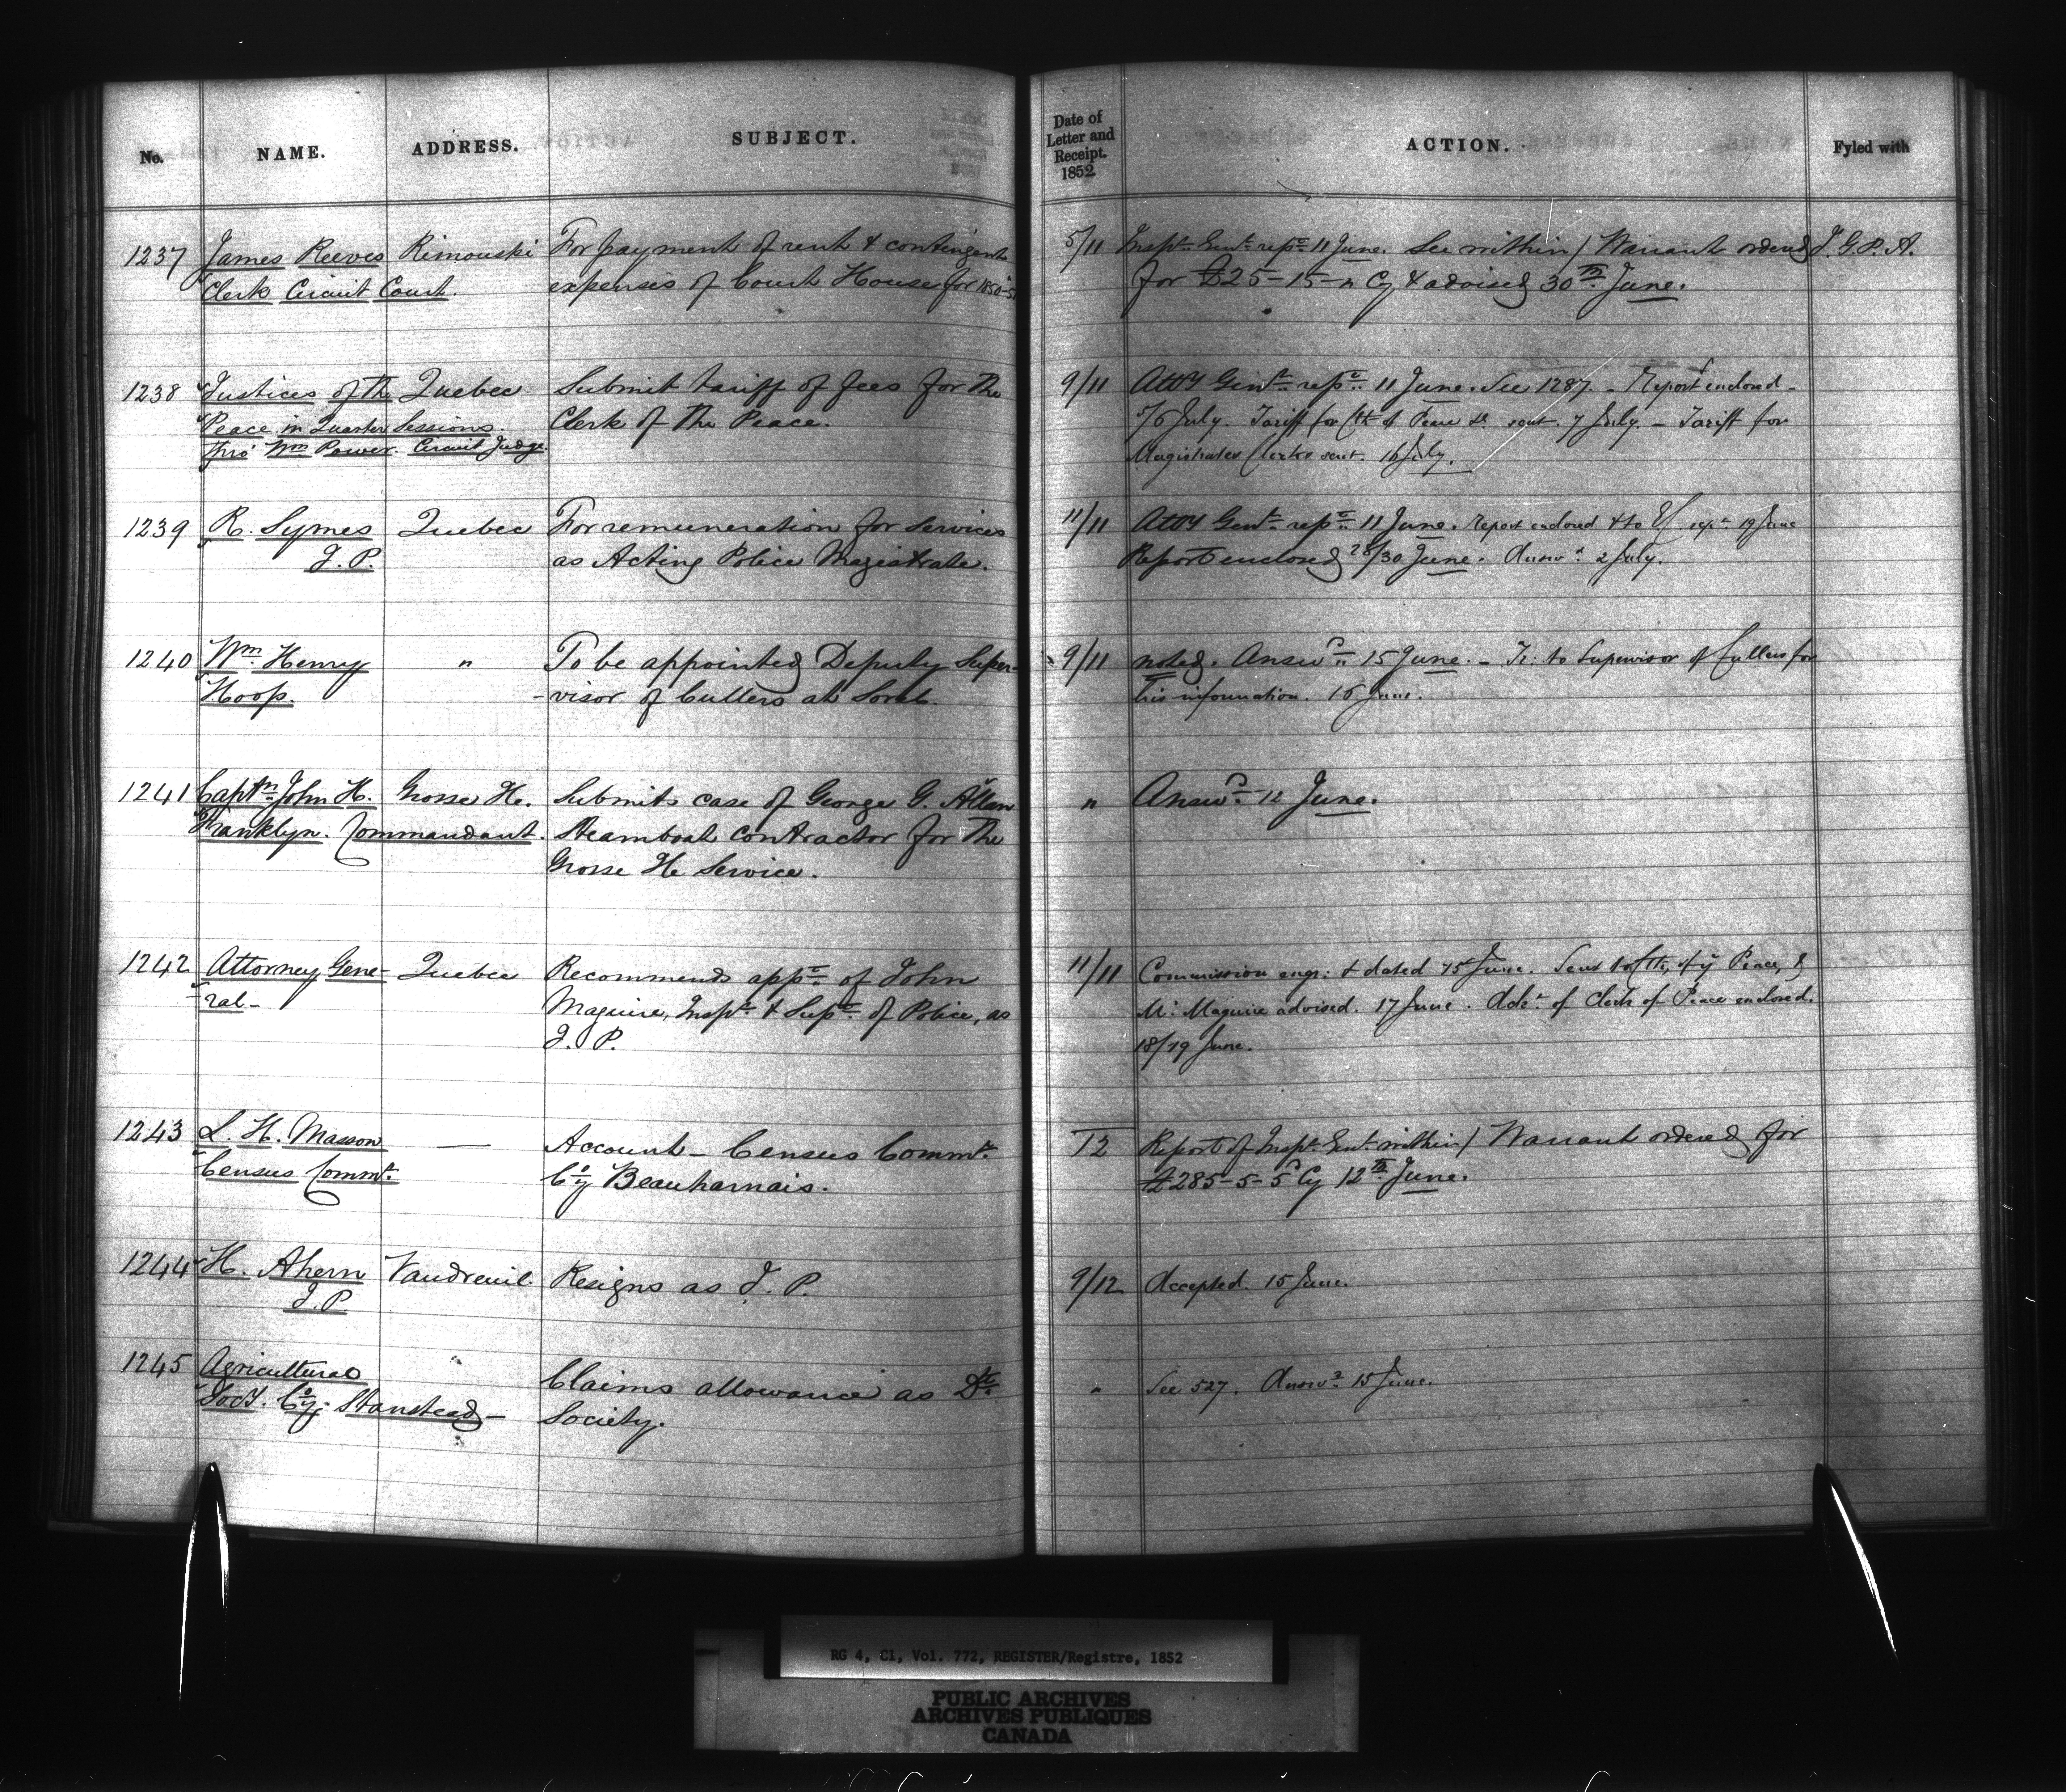 No. NAME. ADDRESS. SUBJECT. Date of Letter and Receipt. 1852 ACTION. Fyled with
1237 James Reeves Rimouski For payment of rent & contingent 5/11 Inspr. Genl. repd. 11 June. See within / Warrant ordered J. G. P. A.
Clerk Circuit Court. expenses of Court House for 1850-51 for £25-15-" Cy & advised 30th June.
1238 Justices of the Quebec Submit tariff of fees for the 9/11 Atty Genl. repd. 11 June. See 1287 - Report enclosed -
Peace in Quarter Sessions. Clerk of the Peace. 5/6 July. Tariff for Clk of Peace &c sent. 7 July. - Tariff for
thro' Wm Power. Circuit Judge. Magistrates Clerks sent. 16 July.
1239 R. Symes Quebec For remuneration for services 11/11 Atty Genl. repd. 11 June. Report enclosed & to repd. 19 June
J. P. as Acting Police Magistrate. Report enclosed 28/30 June. Answd. 2 July.
1240 Wm. Henry " To be appointed Deputy Super- 9/11 noted. Answd. 15 June. - Tr: to Supervisor of Cullers for
Hoop. -visor of Cullers at Sorel. his information. 16 June.
1241 Captn. John H. Grosse Ile. Submits case of George G. Allen " Answd. 12 June.
Franklyn. Commandant. Steamboat contractor for the
Grosse Ile Service.
1242 Attorney Gene- Quebec Recommends appt. of John 11/11 Commission engr: & dated 15 June. Sent to Clk. of ye Peace, &
-ral- Maguire, Inspr. & Supt. of Police, as Mr. Maguire advised. 17 June. Ackt. of Clerk of Peace enclosed.
J. P. 18/19 June.
1243 L. H. Masson — Account - Census Commr. 12 Report of Inspr. Genl. within / Warrant ordered for
Census Commr. Cy Beauharnais. £285-5-5 Cy 12th June.
1244 H. Ahern Vaudreuil Resigns as J. P. 9/12 Accepted. 15 June.
J. P.
1245 Agricultural " Claims allowance as Dt. " See 527. Answd. 15 June.
Socy. Cy. Stanstead - Society.
RG 4, C1, Vol. 772, REGISTER/Registre, 1852
PUBLIC ARCHIVES
ARCHIVES PUBLIQUES
CANADA